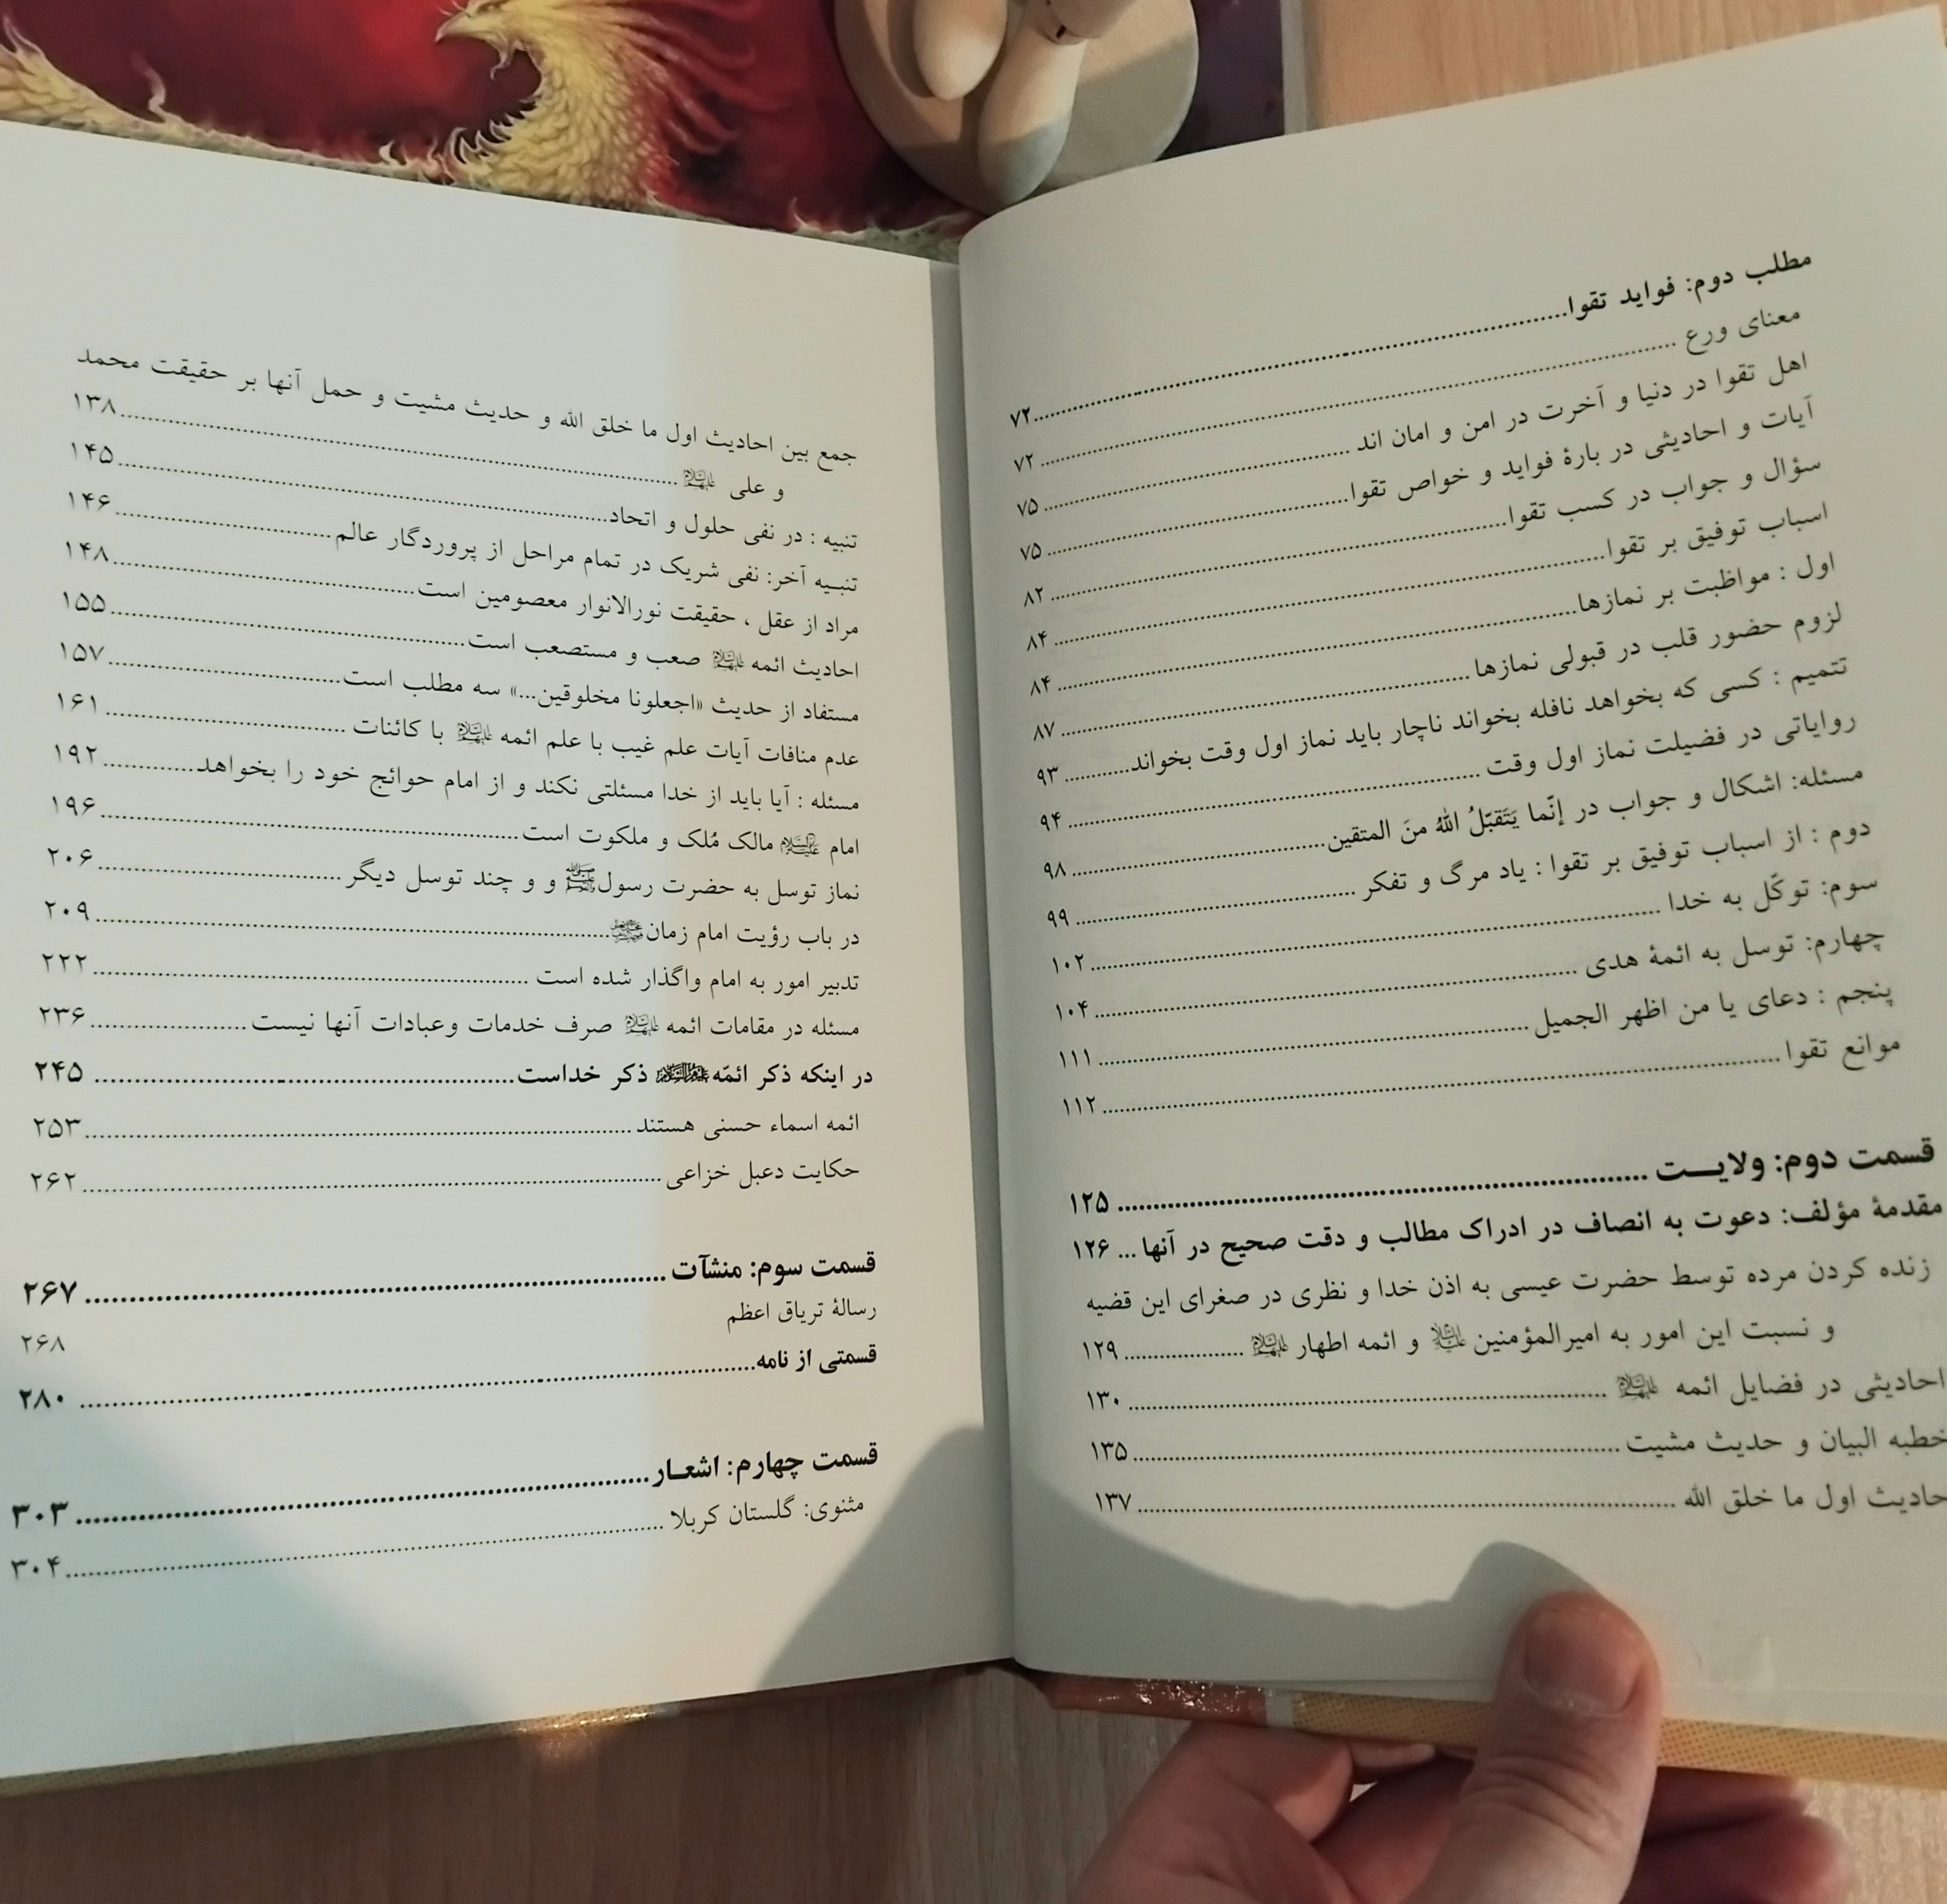 مطلب دوم: فواید تقوا ............ ۷۲
معنای ورع ............ ۷۲
اهل تقوا در دنیا و آخرت در امن و امان اند ............ ۷۵
آیات و احادیثی در بارهٔ فواید و خواص تقوا ............ ۷۵
سؤال و جواب در کسب تقوا ............ ۸۲
اسباب توفیق بر تقوا ............ ۸۴
اول : مواظبت بر نمازها ............ ۸۴
لزوم حضور قلب در قبولی نمازها ............ ۸۷
تتمیم : کسی که بخواهد نافله بخواند ناچار باید نماز اول وقت بخواند ............ ۹۳
روایاتی در فضیلت نماز اول وقت ............ ۹۴
مسئله: اشکال و جواب در إنّما یَتَقبّلُ اللهُ منَ المتقین ............ ۹۸
دوم : از اسباب توفیق بر تقوا : یاد مرگ و تفکر ............ ۹۹
سوم: توکّل به خدا ............ ۱۰۲
چهارم: توسل به ائمهٔ هدی ............ ۱۰۴
پنجم : دعای یا من اظهر الجمیل ............ ۱۱۱
موانع تقوا ............ ۱۱۲
قسمت دوم: ولایـــت ............ ۱۲۵
مقدمهٔ مؤلف: دعوت به انصاف در ادراک مطالب و دقت صحیح در آنها ... ۱۲۶
زنده کردن مرده توسط حضرت عیسی به اذن خدا و نظری در صغرای این قضیه
و نسبت این امور به امیرالمؤمنین علیه‌السلام و ائمه اطهار علیهم‌السلام ............ ۱۲۹
احادیثی در فضایل ائمه علیهم‌السلام ............ ۱۳۰
خطبه البیان و حدیث مشیت ............ ۱۳۵
حادیث اول ما خلق الله ............ ۱۳۷
جمع بین احادیث اول ما خلق الله و حدیث مشیت و حمل آنها بر حقیقت محمد
و علی علیهم‌السلام ............ ۱۳۸
تنبیه : در نفی حلول و اتحاد ............ ۱۴۵
تنبـیه آخر: نفی شریک در تمام مراحل از پروردگار عالم ............ ۱۴۶
مراد از عقل ، حقیقت نورالانوار معصومین است ............ ۱۴۸
احادیث ائمه علیهم‌السلام صعب و مستصعب است ............ ۱۵۵
مستفاد از حدیث «اجعلونا مخلوقین...» سه مطلب است ............ ۱۵۷
عدم منافات آیات علم غیب با علم ائمه علیهم‌السلام با کائنات ............ ۱۶۱
مسئله : آیا باید از خدا مسئلتی نکند و از امام حوائج خود را بخواهد ............ ۱۹۲
امام علیه‌السلام مالک مُلک و ملکوت است ............ ۱۹۶
نماز توسل به حضرت رسول و و چند توسل دیگر ............ ۲۰۶
در باب رؤیت امام زمان ............ ۲۰۹
تدبیر امور به امام واگذار شده است ............ ۲۲۲
مسئله در مقامات ائمه علیهم‌السلام صرف خدمات وعبادات آنها نیست ............ ۲۳۶
در اینکه ذکر ائمّه علیهم‌السلام ذکر خداست ............ ۲۴۵
ائمه اسماء حسنی هستند ............ ۲۵۳
حکایت دعبل خزاعی ............ ۲۶۲
قسمت سوم: منشآت ............ ۲۶۷
رسالهٔ تریاق اعظم ۲۶۸
قسمتی از نامه ............ ۲۸۰
قسمت چهارم: اشعـار ............ ۳۰۳
مثنوی: گلستان کربلا ............ ۳۰۴